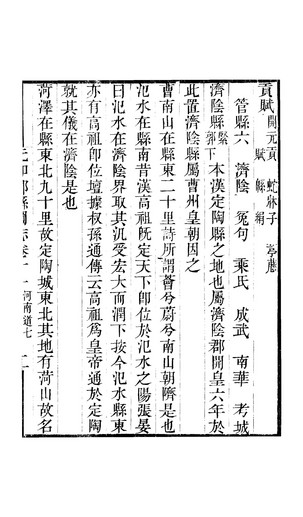 貢賦 開元貢 蛇牀子 葶藶
賦 縣 絹
管縣六 濟陰 冤句 乘氏 成武 南華 考城
濟陰縣 緊郭下 本漢定陶縣之地也屬濟陰郡開皇六年於
此置濟陰縣屬曹州皇朝因之
曹南山在縣東二十里詩所謂薈兮蔚兮南山朝隮是也
氾水在縣南昔漢高祖既定天下卽位於氾水之陽張晏
曰氾水在濟陰界取其氾受宏大而潤下按今氾水縣東
亦有高祖卽位壇據叔孫通傳云高祖爲皇帝通於定陶
就其儀在濟陰是也
菏澤在縣東北九十里故定陶城東北其地有菏山故名
元和郡縣圖志卷十一 河南道七 二